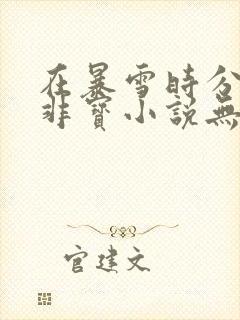 在暴雪時分
非寶小說無
官建文